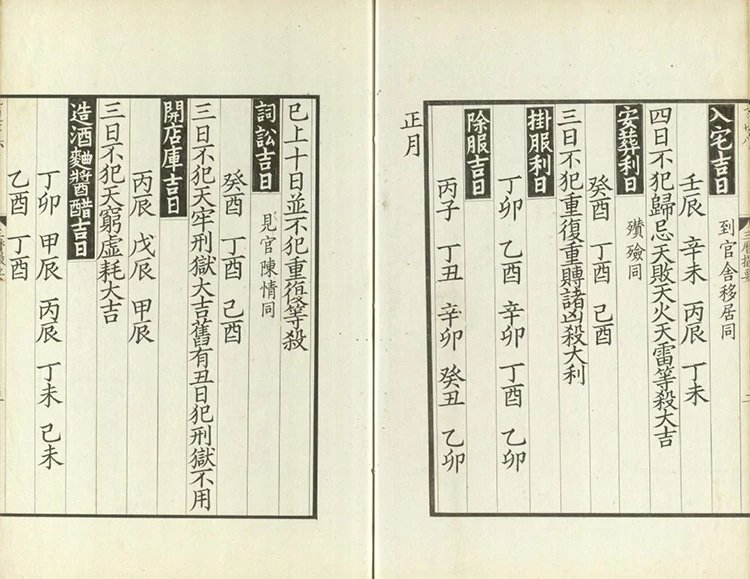 入宅吉日 到官舍移居同
壬辰 辛未 丙辰 丁未
四日不犯歸忌天敗天火天雷等殺大吉
安葬利日 殮同
癸酉 丁酉 己酉
三日不犯重復重賻諸凶殺大利
掛服利日
丁卯 乙酉 辛卯 丁酉 乙卯
除服吉日
丙子 丁丑 辛卯 癸丑 乙卯
正月
已上十日並不犯重復等殺
詞訟吉日 見官陳情同
癸酉 丁酉 己酉
三日不犯天牢刑獄大吉舊有丑日犯刑獄不用
開店庫吉日
丙辰 戊辰 甲辰
三日不犯天窮虛耗大吉
造酒麯醬醋吉日
丁卯 甲辰 丙辰 丁未 己未
乙酉 丁酉